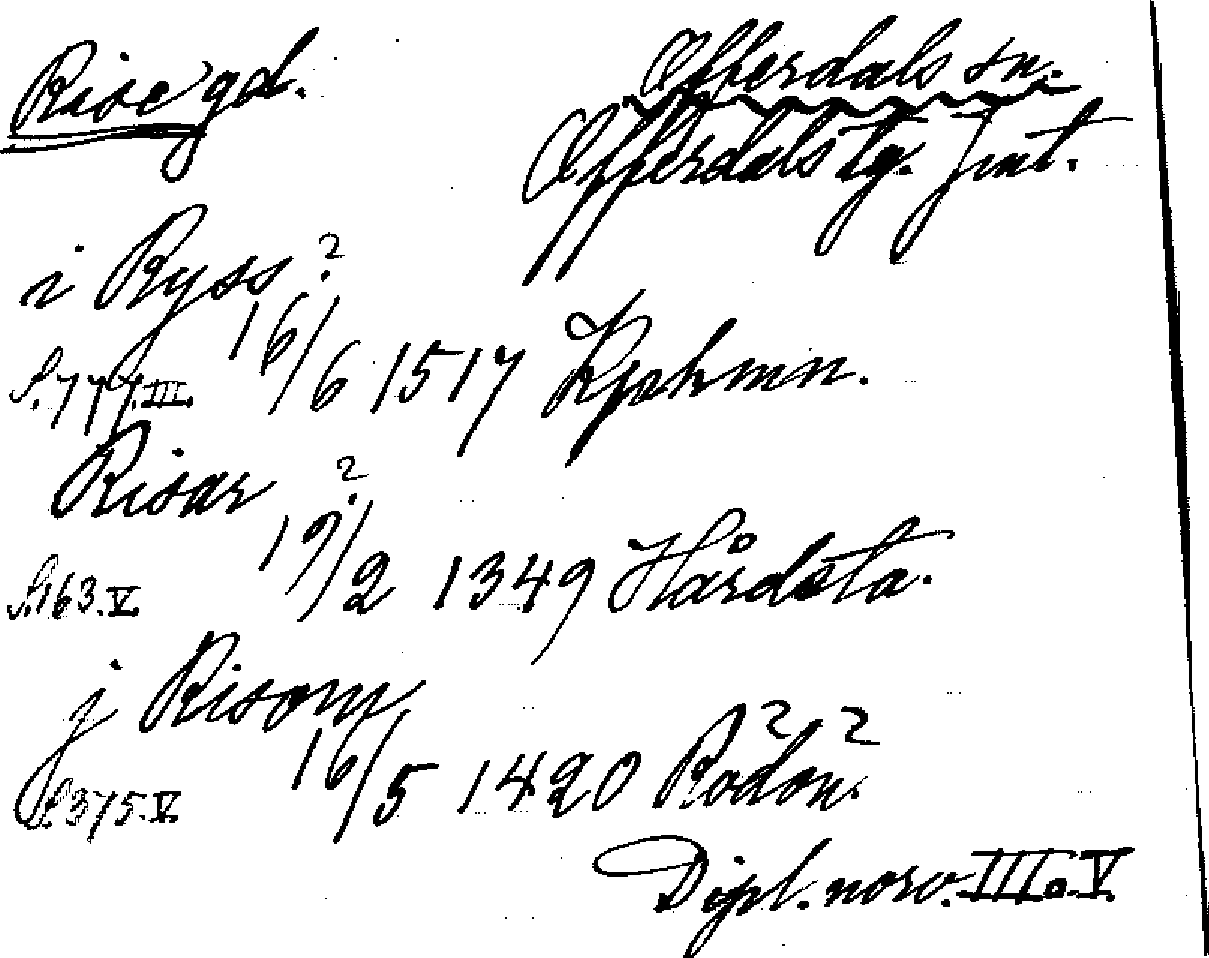 Rise gd.
Offerdals sn.
Offerdals tg. Jmt.
i Ryss ?
S. 777. III. 16/6 1517 Kjøhmn.
Risar ?
S. 163. V. 19/2 1349 Hårdsta.
j Risom
S. 375. V. 16/5 1420 Rödön. ? ?
Dipl. norv. III o. V.